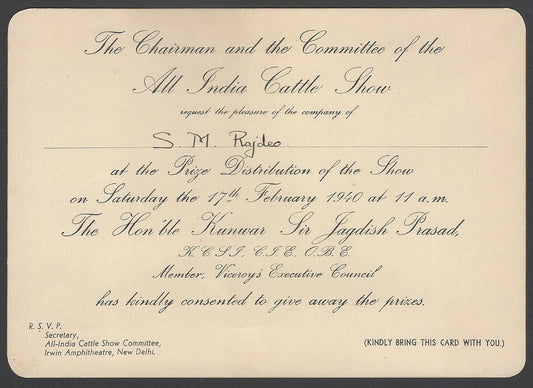 The Chairman and the Committee of the
All India Cattle Show
request the pleasure of the company of
S. M. Rajdeo.
at the Prize Distribution of the Show
on Saturday the 17th February 1940 at 11 a.m.
The Hon'ble Kunwar Sir Jagdish Prasad,
K.C.S.I., C.I.E., O.B.E.
Member, Viceroy's Executive Council
has kindly consented to give away the prizes.
R. S. V. P.
Secretary,
All-India Cattle Show Committee,
Irwin Amphitheatre, New Delhi.
(KINDLY BRING THIS CARD WITH YOU.)